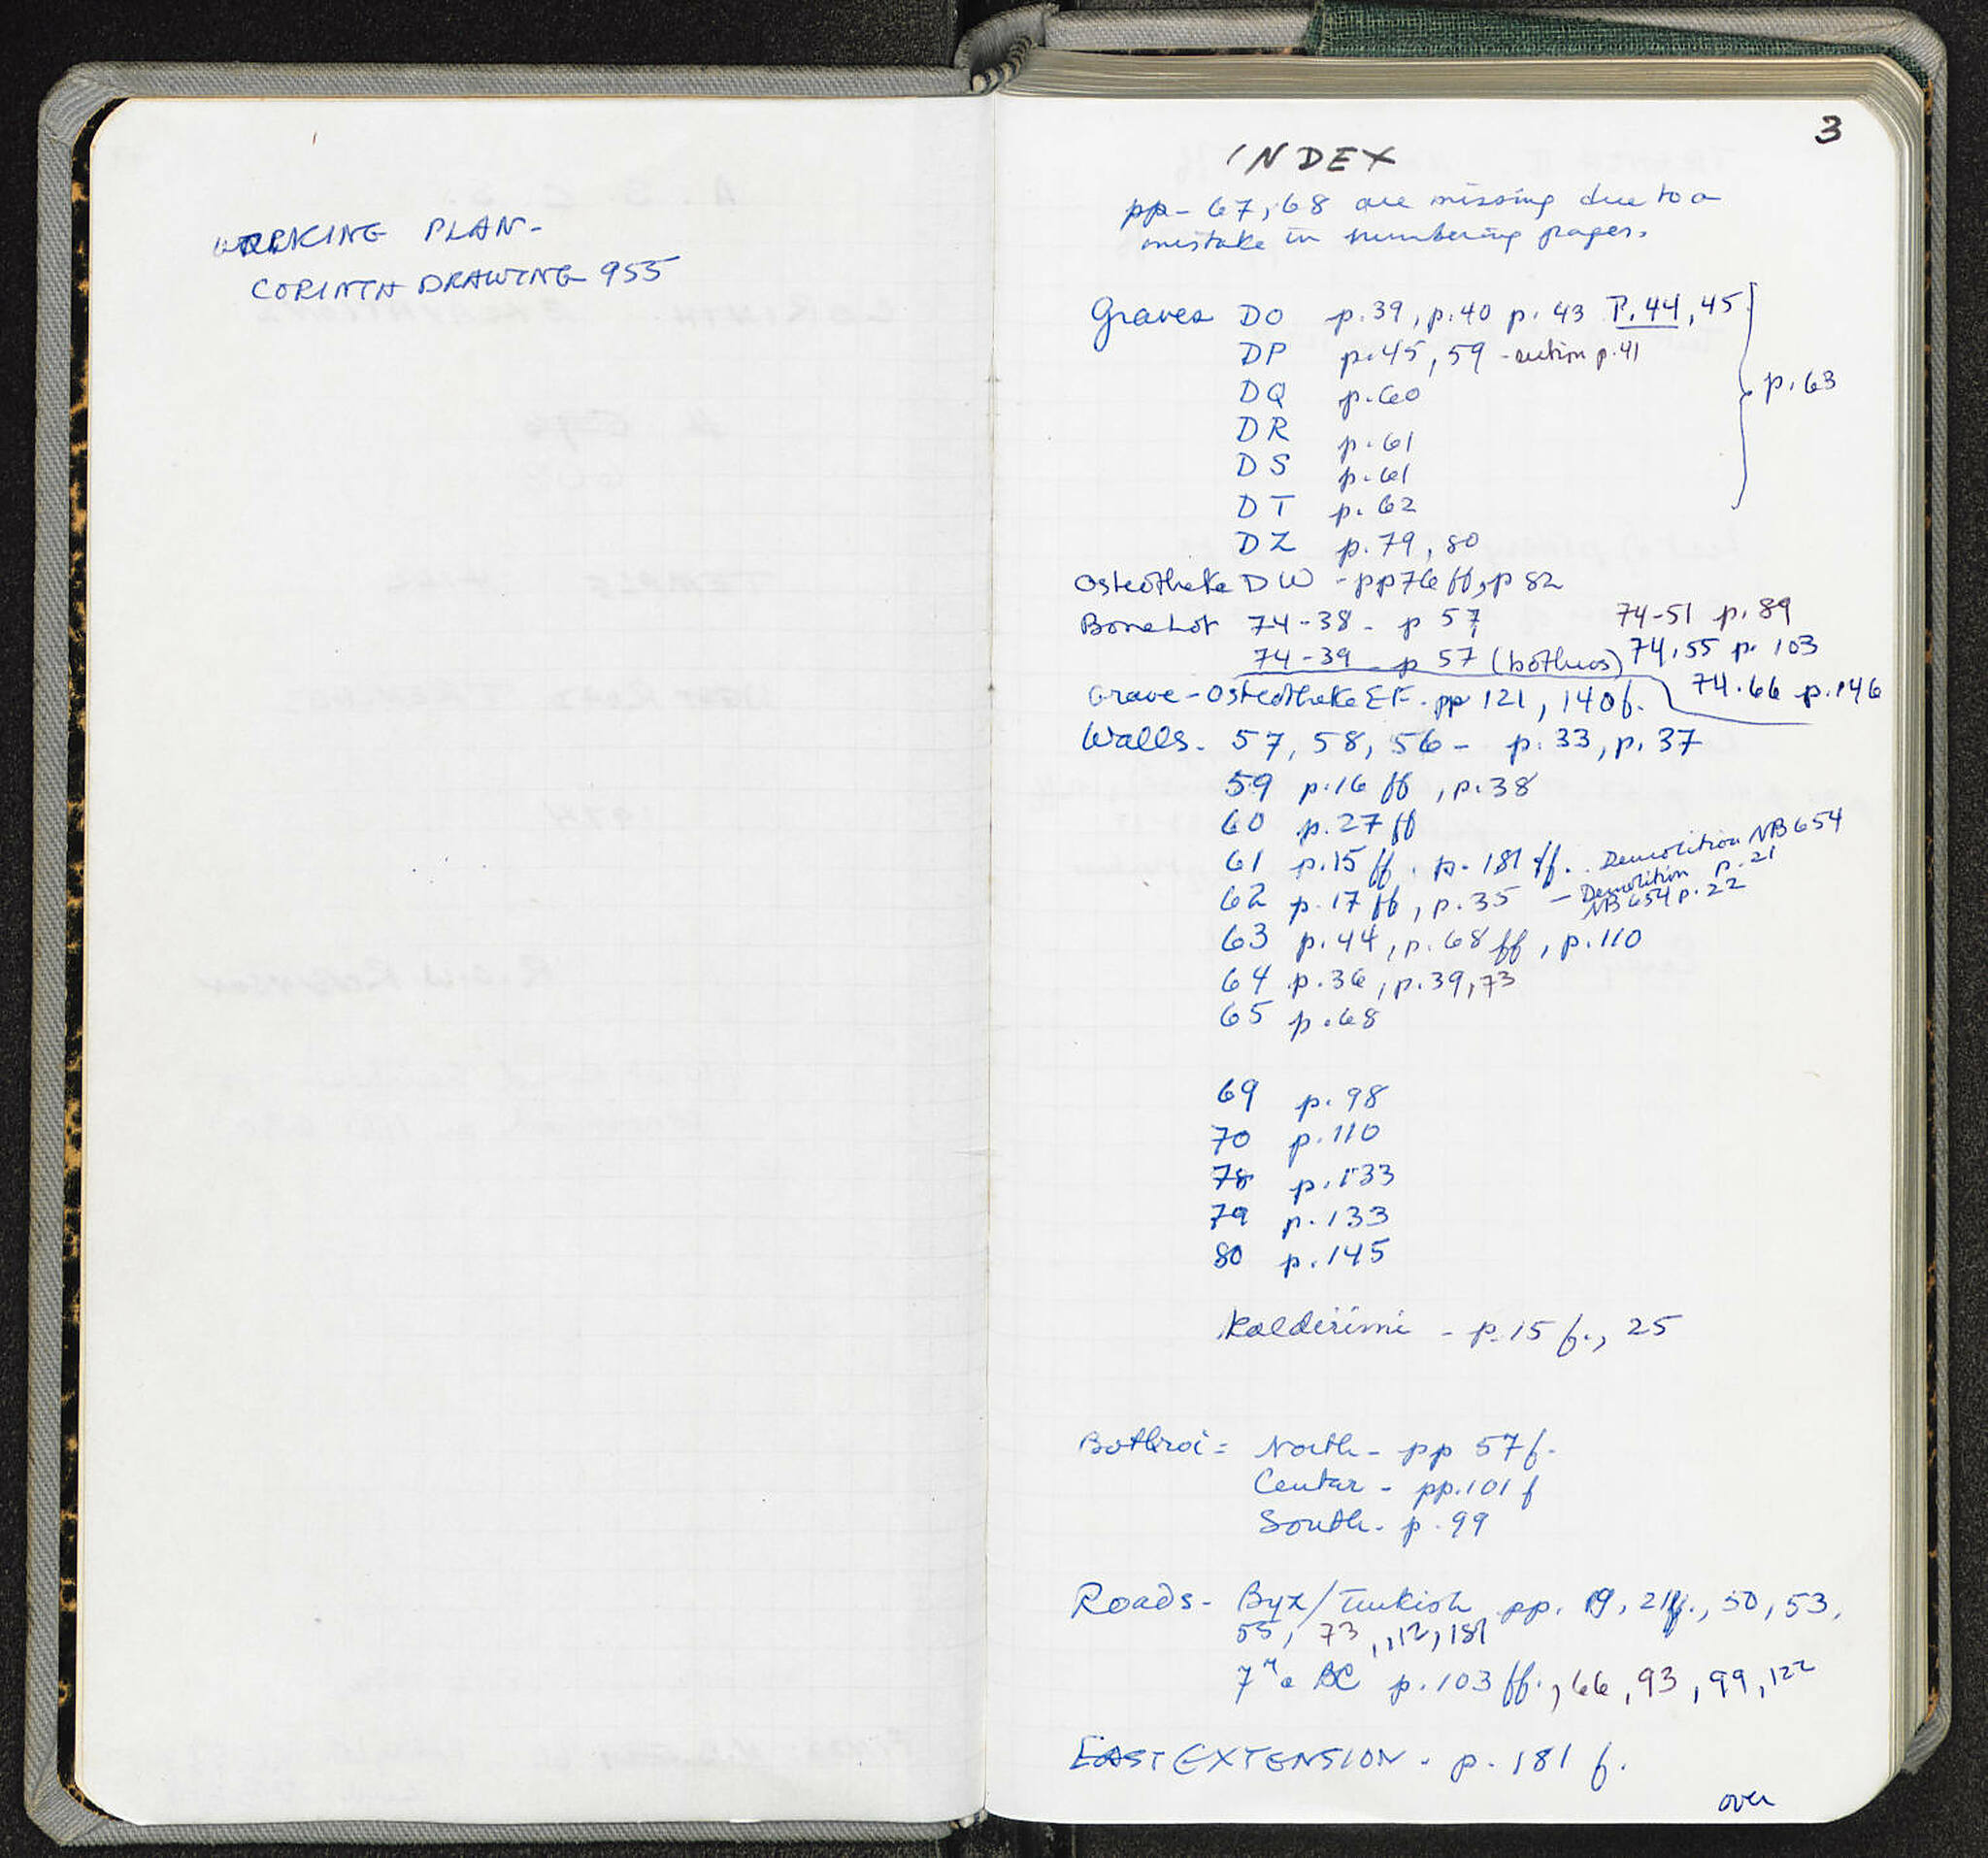 WORKING PLAN-
CORINTH DRAWING 955
3
INDEX
pp- 67, 68 are missing due to a
mistake in numbering pages.
Graves DO p.39, p.40 p. 43 P. 44, 45
DP p.45, 59 - section p.41
DQ p.60
DR p.61
DS p.61
DT p. 62
p. 63
DZ p.79, 80
Osteotheke DW - pp76 ff, p 82
Bone Lot 74-38 - p 57 74-51 p. 89
74-39 - p 57 (bothros) 74.55 p. 103
74.66 p.146
Grave-Osteotheke EF. pp 121, 140f.
Walls. 57, 58, 56 - p. 33, p. 37
59 p.16 ff, p.38
60 p.27 ff
61 p.15 ff. p. 181 ff. . Demolition NB 654 p. 21
62 p.17 ff, p.35 - Demolition
NB 654 p. 22
63 p.44, p.68 ff, p.110
64 p.36, p.39, 73
65 p.68
69 p. 98
70 p.110
78 p.133
79 p.133
80 p.145
Kalderimi - p.15 f., 25
Bothroi = North - pp 57f.
Center - pp.101 f
South - p. 99
Roads - Byz/Turkish pp. 19, 21ff., 50, 53,
55, 73, 112, 181
7th c BC p.103 ff., 66, 93, 99, 122
EAST EXTENSION - p. 181 f.
over